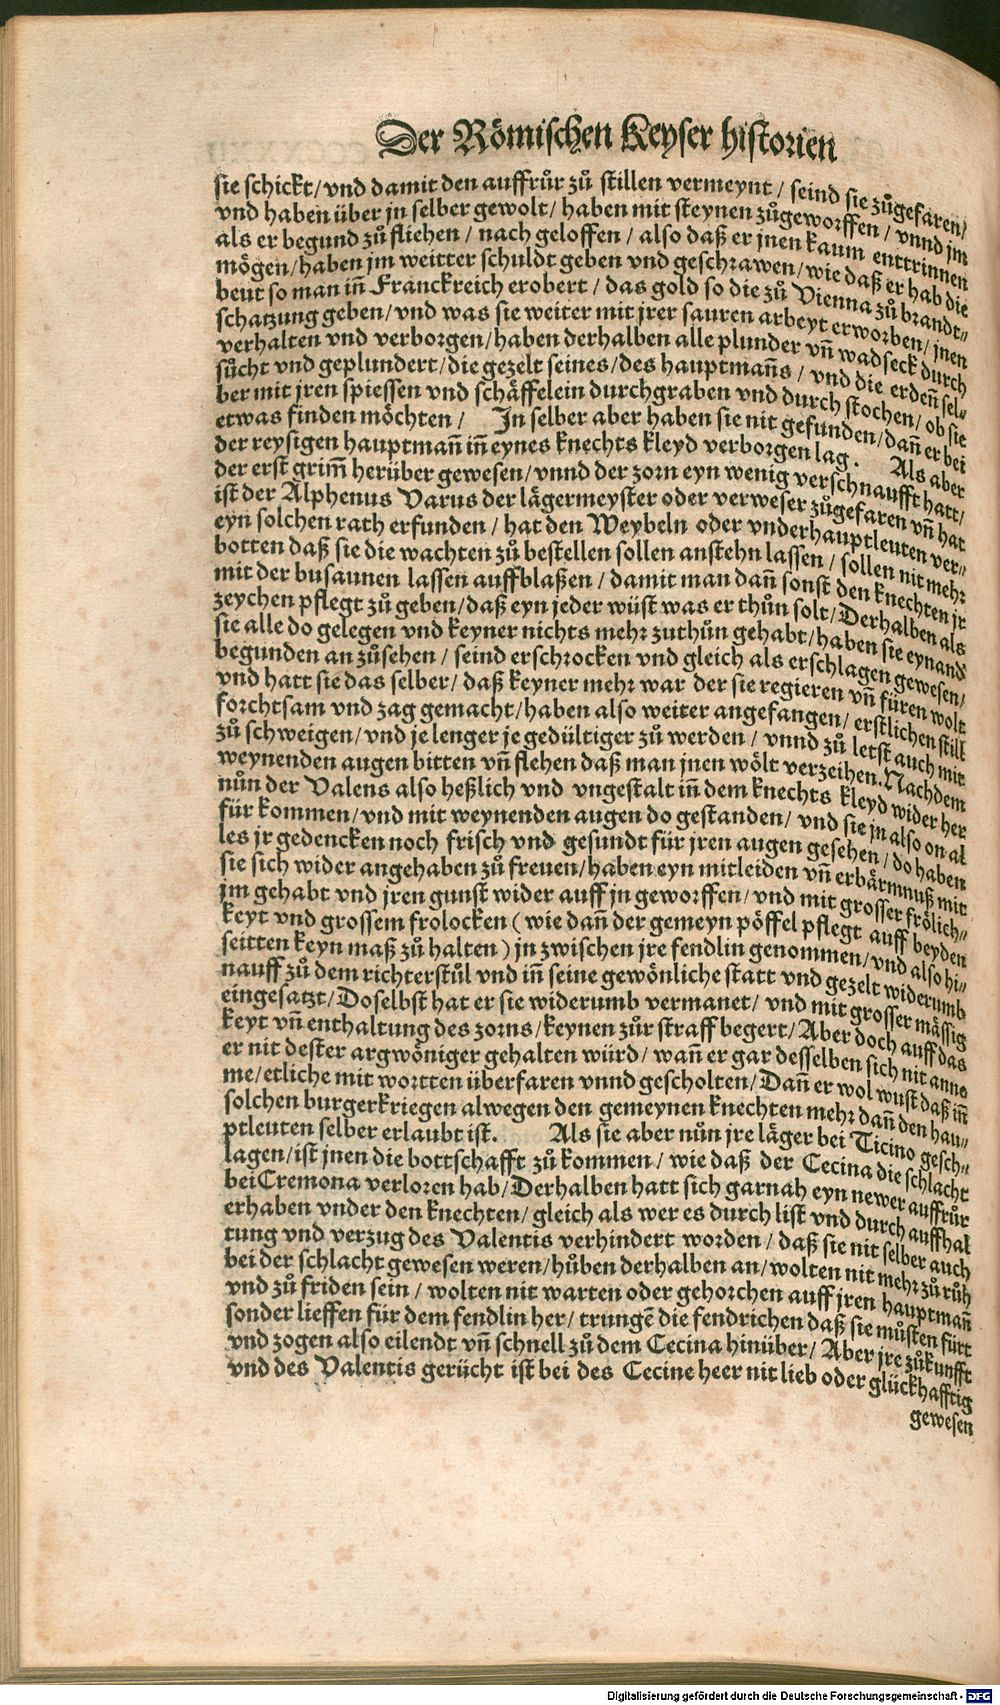 Der Römischen Keyser historien
sie schickt/vnd damit den auffrůr zů stillen vermeynt / seind sie zůgefaren/
vnd haben über jn selber gewolt/ haben mit steynen zůgeworffen / vnnd jm
als er begund zů fliehen / nach geloffen / also daß er jnen kaum enttrinnen
mögen/haben jm weitter schuldt geben vnd geschrawen/wie daß er hab die
beut so man iñ Franckreich erobert / das gold so die zů Vienna zů brandt⸗
schatzung geben/vnd was sie weiter mit jrer sauren arbeyt erworben/ jnen
verhalten vnd verborgen/haben derhalben alle plunder vñ wadseck durch
sůcht vnd geplundert/die gezelt seines/des hauptmañs / vnd die erdeñ sel⸗
ber mit jren spiessen vnd schäffelein durchgraben vnd durch stochen/ ob sie
etwas finden möchten / Jn selber aber haben sie nit gefunden/dañ er bei
der reysigen hauptmañ iñ eynes knechts kleyd verborgen lag. Als aber
der erst grim̃ herüber gewesen/vnnd der zorn eyn wenig verschnaufft hatt/
ist der Alphenus Varus der lägermeyster oder verweser zůgefaren vñ hat
eyn solchen rath erfunden / hat den Weybeln oder vnderhauptleuten ver⸗
botten daß sie die wachten zů bestellen sollen anstehn lassen / sollen nit mehr
mit der busaunen lassen auffblaßen / damit man dañ sonst den knechten jr
zeychen pflegt zů geben/daß eyn jeder wüst was er thůn solt/Derhalben als
sie alle do gelegen vnd keyner nichts mehr zuthůn gehabt/haben sie eynand
begunden an zůsehen / seind erschrocken vnd gleich als erschlagen gewesen/
vnd hatt sie das selber/ daß keyner mehr war der sie regieren vñ füren wolt
forchtsam vnd zag gemacht/haben also weiter angefangen/ erstlichen still
zů schweigen/vnd je lenger je gedültiger zů werden / vnnd zů letst auch mit
weynenden augen bitten vñ flehen daß man jnen wölt verzeihen. Nachdem
nůn der Valens also heßlich vnd vngestalt iñ dem knechts kleyd wider her
für kommen/vnd mit weynenden augen do gestanden/ vnd sie jn also on al
les jr gedencken noch frisch vnd gesundt für jren augen gesehen / do haben
sie sich wider angehaben zů freuen/haben eyn mitleiden vñ erbärmnuß mit
jm gehabt vnd jren gunst wider auff jn geworffen/vnd mit grosser frölich⸗
keyt vnd grossem frolocken (wie dañ der gemeyn pöffel pflegt auff beyden
seitten keyn maß zů halten) jn zwischen jre fendlin genommen/vnd also hi⸗
nauff zů dem richterstůl vnd iñ seine gewönliche statt vnd gezelt widerumb
eingesatzt/Doselbst hat er sie widerumb vermanet/ vnd mit grosser mässig
keyt vñ enthaltung des zorns/keynen zůr straff begert/Aber doch auff das
er nit dester argwöniger gehalten würd/ wañ er gar desselben sich nit anne
me/etliche mit wortten überfaren vnnd gescholten/Dañ er wol wust daß iñ
solchen burgerkriegen alwegen den gemeynen knechten mehr dañ den hau⸗
ptleuten selber erlaubt ist. Als sie aber nůn jre läger bei Ticino gesch⸗
lagen/ist jnen die bottschafft zů kommen / wie daß der Cecina die schlacht
bei Cremona verloren hab/Derhalben hatt sich garnah eyn newer auffrůr
erhaben vnder den knechten/gleich als wer es durch list vnd durch auffhal
tung vnd verzug des Valentis verhindert worden / daß sie nit selber auch
bei der schlacht gewesen weren/hůben derhalben an/wolten nit mehr zů růh
vnd zů friden sein / wolten nit warten oder gehorchen auff jren hauptmañ
sonder lieffen für dem fendlin her/ trungē die fendrichen daß sie můsten fürt
vnd zogen also eilendt vñ schnell zů dem Cecina hinüber/ Aber jre zůkunfft
vnd des Valentis gerücht ist bei des Cecine heer nit lieb oder glückhafftig
gewesen
Digitalisierung gefördert durch die Deutsche Forschungsgemeinschaft - DFG